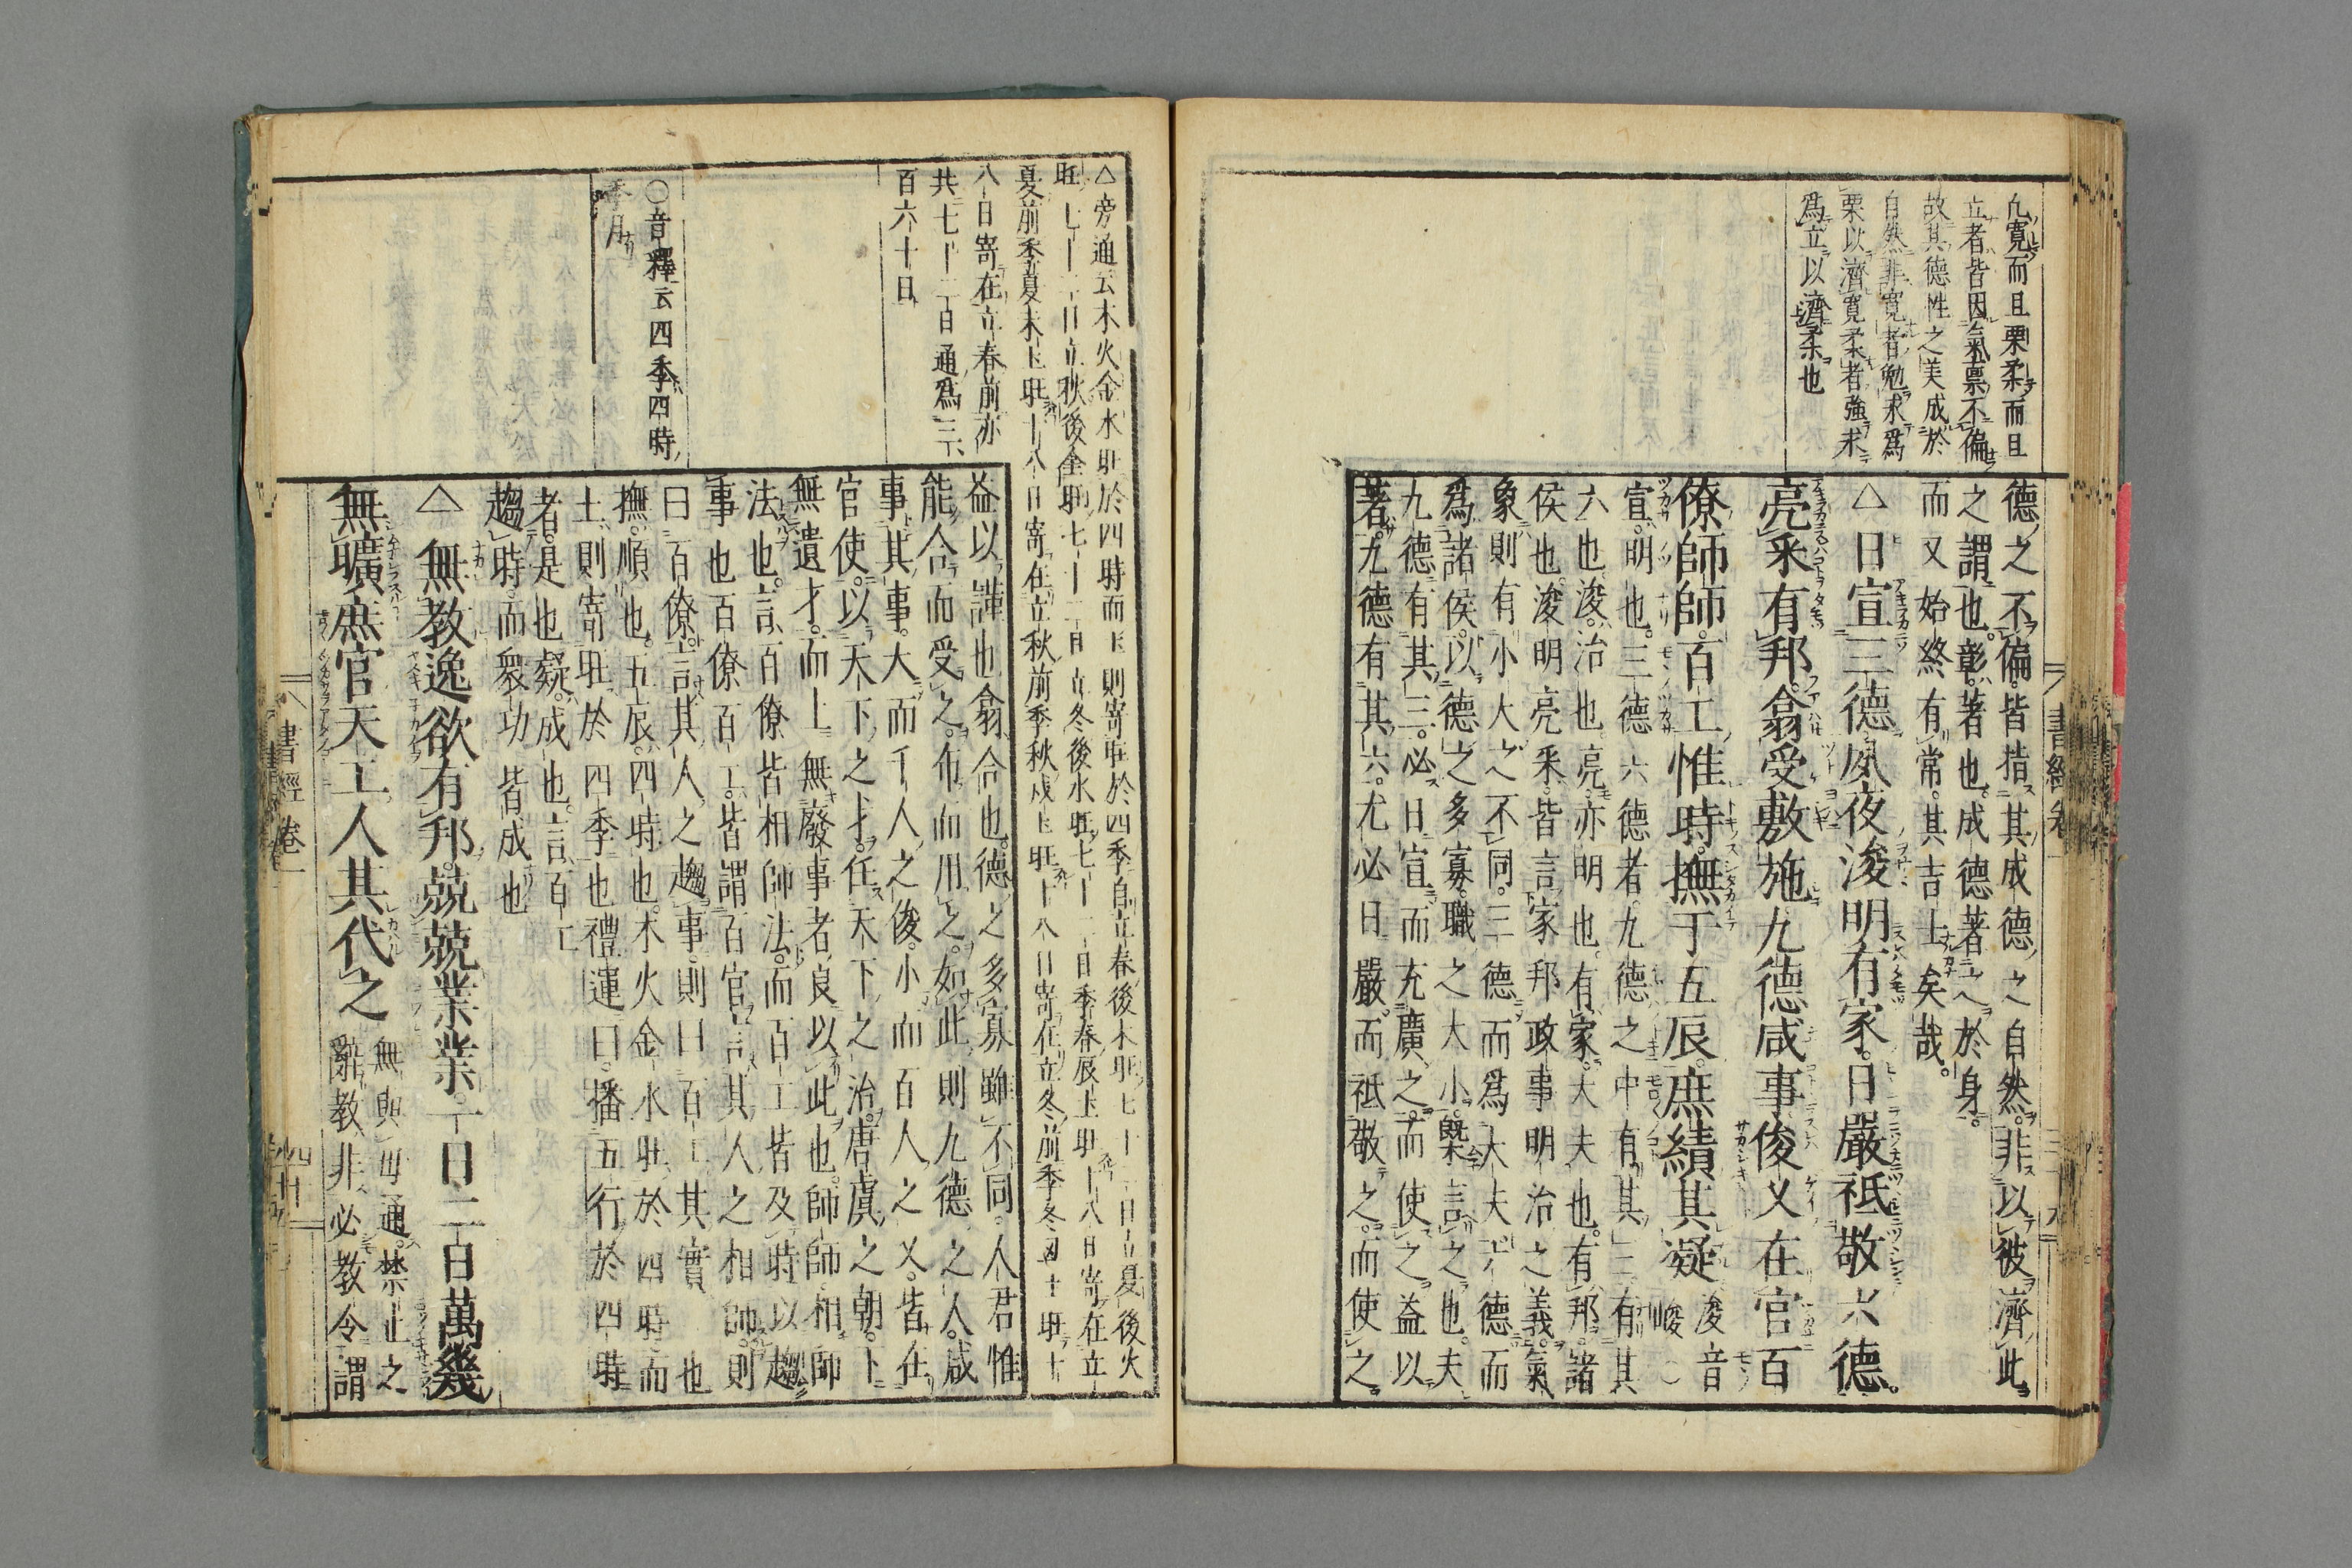 凢寬而且栗柔而且
立者皆因氣稟不偏
故其德性之美成於
自然非寬者勉求爲
栗以濟寬柔者強求
爲立以濟柔也
德之不偏皆指其成德之自然非以彼濟此
之謂也彰著也成德著之於身
而又始終有常其吉士矣哉
△日宣三德夙夜浚明有家日嚴祗敬六德
亮采有邦翕受敷施九德咸事俊乂在官百
僚師師百工惟時撫于五辰庶績其凝
浚音
峻〇
宣明也三德六德者九德之中有其三有其
六也浚治也亮亦明也有家大夫也有邦諸
侯也浚明亮采皆言家邦政事明治之義氣
象則有小大之不同三德而爲大夫六德而
爲諸侯以德之多寡職之大小槩言之也夫
九德有其三必日宣而充廣之而使之益以
著九德有其六尤必日嚴而祗敬之而使之
書經卷一
△旁通云木火金水旺於四時而土則寄旺於四季自立春後木旺七十二日立夏後火
旺七十二日立秋後金旺七十二日立冬後水旺七十二日季春辰土旺十八日寄在立
夏前季夏未土旺十八日寄在立秋前季秋戌土旺十八日寄在立冬前季冬丑土旺十
八日寄在立春前亦
共七十二日通爲三
百六十日
〇音釋云四季四時
季月
益以謹也翕合也德之多寡雖不同人君惟
能合而受之布而用之如此則九德之人咸
事其事大而千人之俊小而百人之乂皆在
官使以天下之才任天下之治唐虞之朝下
無遺才而上無廢事者良以此也師師相師
法也言百僚皆相師法而百工皆及時以趨
事也百僚百工皆謂百官言其人之相師則
曰百僚言其人之趨事則曰百工其實一也
撫順也五辰四時也木火金水旺於四時而
土則寄旺於四季也禮運曰播五行於四時
者是也凝成也言百工
趨時而衆功皆成也
△無教逸欲有邦兢兢業業一日二日萬幾
無曠庶官天工人其代之
無與毋通禁止之
辭教非必教令謂
書經卷一
四十